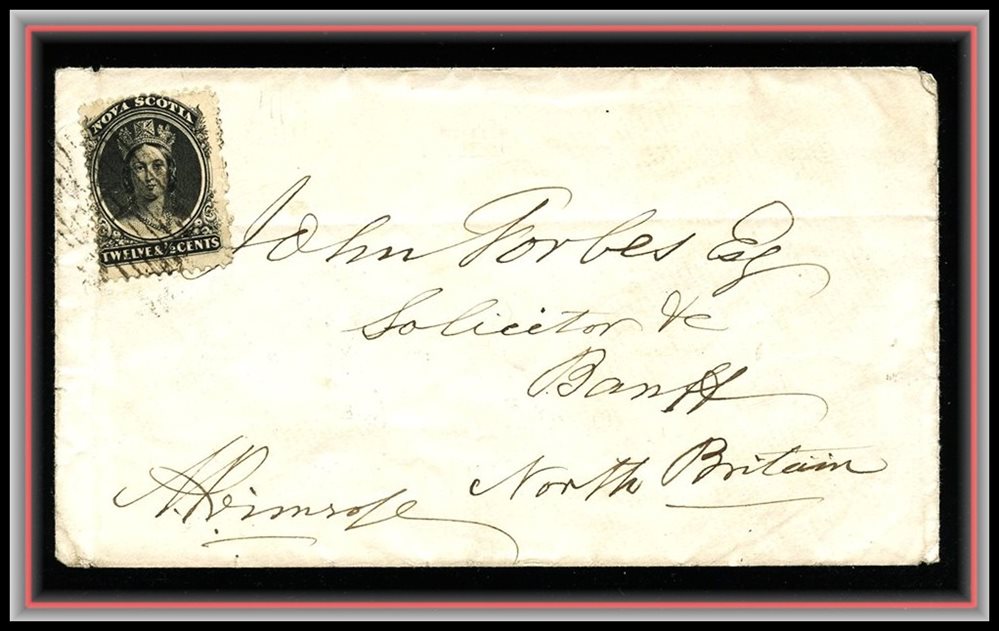 NOVA SCOTIA
TWELVE & ½ CENTS
John Forbes Esq
Solicitor &c
Banff
North Britain
A. Primrose